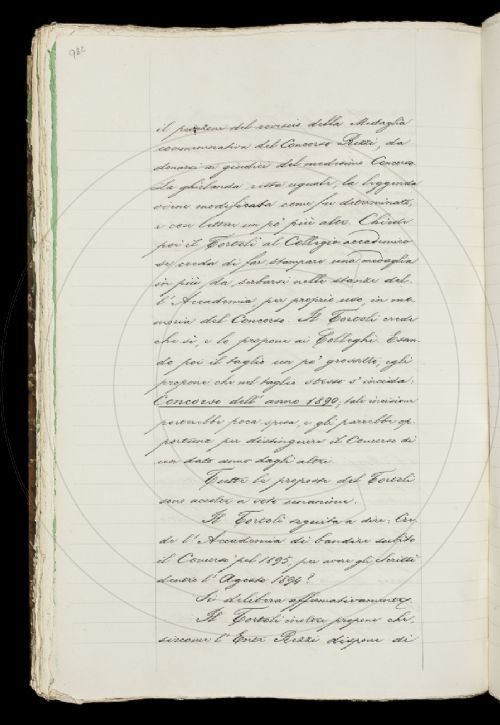 982
il del rovescio della Medaglia
commemorativa del Concorso Rezzi, da
donarsi ai giudici del medesimo Concorso.
La ghirlanda resta uguale, la leggenda
viene modificata come fu determinato,
e con lettere un pò più alte. Chiede
poi il Tortoli al Collegio accademico
se creda di far stampare una medaglia
in più da serbarsi nelle stanze del-
l'Accademia, per proprio uso, in me-
moria del Concorso. Il Tortoli crede
che sì, e lo propone ai Colleghi. Essen-
do poi il taglio un po' grossetto, egli
propone che nel taglio stesso s'incida:
Concorso dell'anno 1890; tale incisione
porterebbe poca spesa, e gli parrebbe op-
portuna per distinguere il Concorso di
un dato anno dagli altri.
Tutte le proposte del Tortoli
sono accolte a voto unanime.
Il Tortoli seguita a dire: Cre-
de l'Accademia di bandire subito
il Concorso pel 1895, per avere gli Scritti
dentro l'Agosto 1894?
Si delibera affermativamente.
Il Tortoli inoltre propone che,
siccome l'Ente Rezzi dispone di